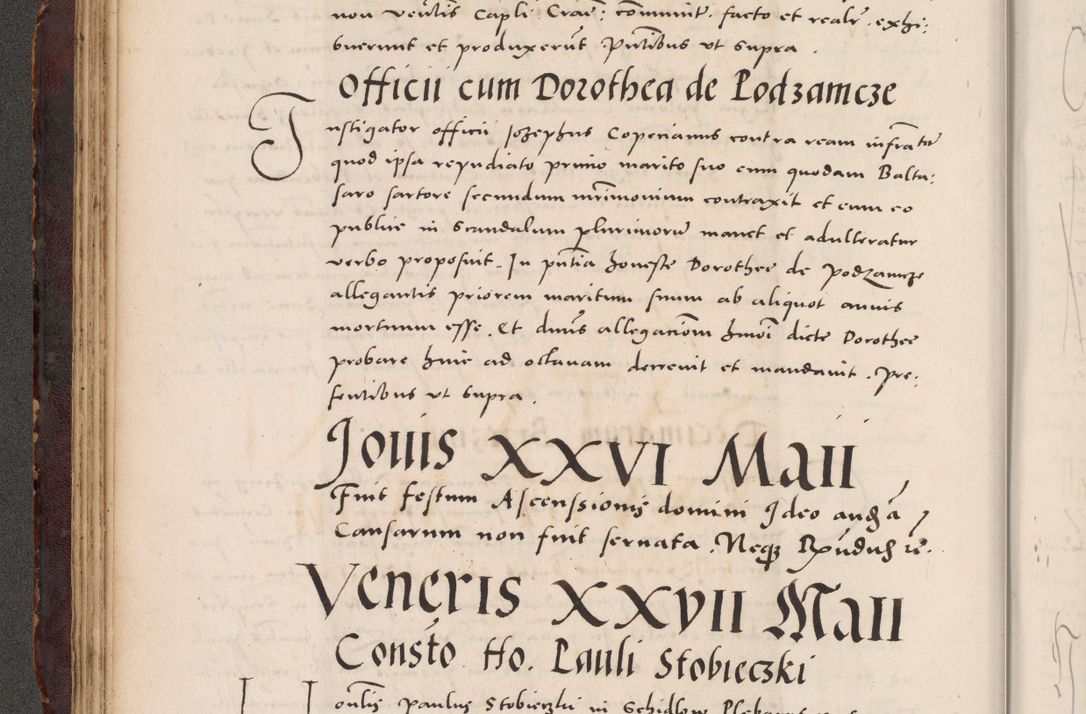 non ventis Capli Crac: comunit. facto et realr. exhi:
buerunt et produxerut Pntibus ut supra.
Officii cum Dorothea de Podzamcze
Instigator officii Jozephus Copecianus contra ream infrator
quod ipsa repudiato primo marito suo cum quodam Balta:
saro sartore secundum mrimonium contraxit et cum eo
publice in scandalum plurimoru manet et adulteratur
verbo proposuit. In pntia honeste Dorothee de Podzamcze
allegantis priorem maritum suum ab aliquot annis
mortuum esse. Et dnus allegacionem hmoi dicte Dorothee
probare huic ad octavam decrevit et mandavit. Pre:
sentibus ut supra.
Jovis XXVI Maii
Fuit festum Ascenssionis domini Ideo auda
Causarum non fuit servata. Neq
Veneris XXVII Maii
Consto Ho. Pauli Stobieczki
Paulus Stobieczki in Schidlow